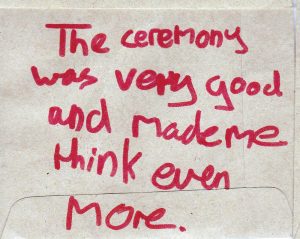 The ceremony
was very good
and made me
think even
more.